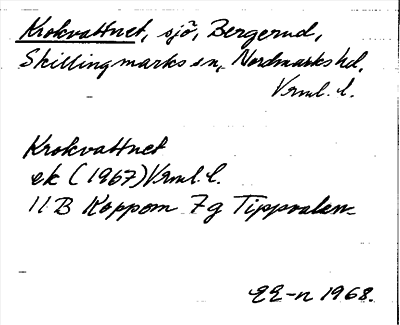 Krokvattnet, sjö, Bergerud,
Skillingmarks sn, Nordmarks hd,
Vrml. l.
Krokvattnet
ek (1967) Vrml. l.
11B Koppom 7g
EE-n 1968.